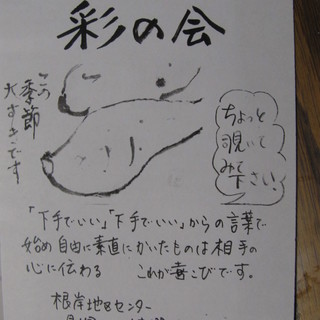 彩の会
この
季節
大すきです
ちょっと
覗いて
みて
下さい!
「下手でいい」「下手でいい」からの言葉で
始め自由に素直にかいたものは相手の
心に伝わる これが喜こびです。
根岸地区センター